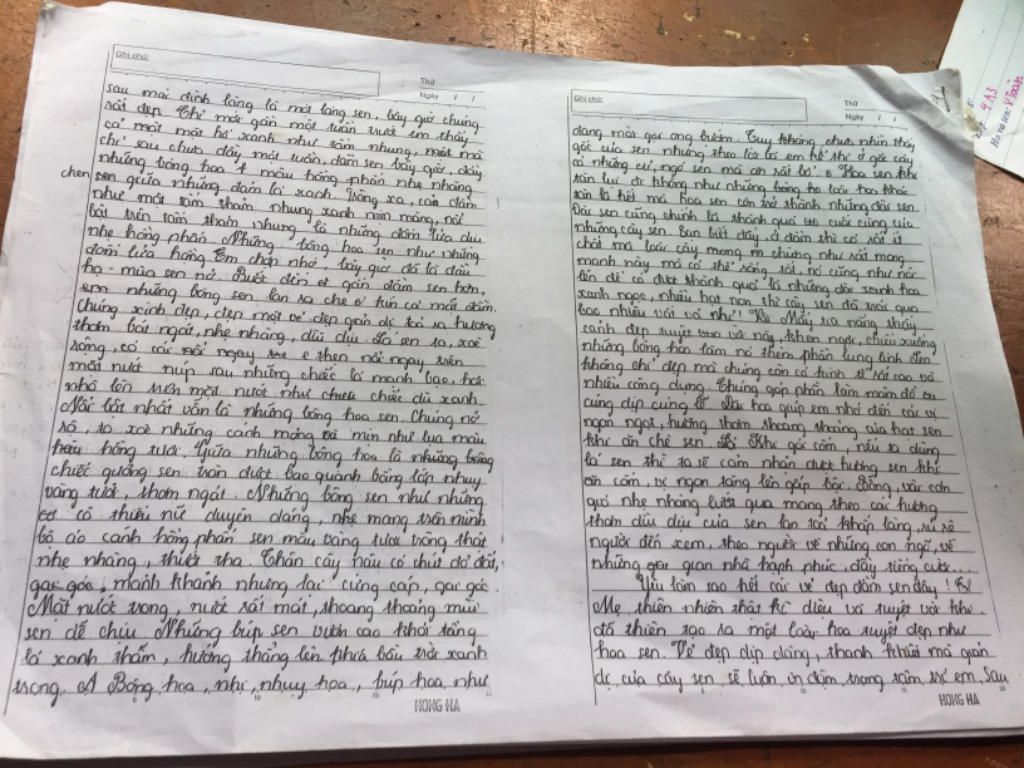 Ghi chú:
Thứ
Ngày / /
sau mái đình làng là một làng sen, bây giờ chúng
rất đẹp. Chỉ mới gần một tuần trước em thấy
cả một mặt hồ xanh như tấm nhung, một mà
chỉ sau chưa đầy một tuần, đầm sen bây giờ, đầy
những bông hoa màu hồng phấn nhẹ nhàng
chen sen giữa những đám lá xanh. Trông xa, cả đầm
như một tấm thảm nhung xanh mịn màng, nổi
bật trên tấm thảm nhung là những đốm lửa dịu
nhẹ hồng phấn. Những bông hoa sen như những
đốm lửa hồng thắp nhờ, bây giờ đã là đầu
hạ - mùa sen nở. Bước đến gần đầm sen hơn,
em những bông sen lan ra che kín cả mặt đầm.
Chúng xinh đẹp, đẹp một vẻ đẹp giản dị toả ra hương
thơm bát ngát, nhẹ nhàng, dìu dịu. Lá sen to, xoè
rộng, có cái nổi ngay e thẹn nổi ngay trên
mặt nước núp sau những chiếc lá mạnh bạo,
nhô lên trên mặt nước như chiếc dù xanh.
Nổi bật nhất vẫn là những bông hoa sen. Chúng nở
rộ, to xoè những cánh mỏng và mịn như lụa màu
hồng tươi. Giữa những bông hoa là những
chiếc guồng sen tròn được bao quanh bằng lớp nhuỵ
vàng tươi, thơm ngát. Những bông sen như những
cô thiếu nữ duyên dáng, nhẹ mang trên mình
bộ áo cánh hồng phấn sen màu vàng tươi trông thật
nhẹ nhàng, thiết tha. Thân cây nâu có chút đỏ đất,
gai góc, mảnh khảnh nhưng lại cứng cáp, gai góc
Mặt nước trong, nước rất mát, thoang thoảng mùi
sen dễ chịu. Những búp sen vươn cao khỏi tầng
lá xanh thắm, hướng thẳng lên phía bầu trời xanh
trong. Bông hoa, nhị, nhuỵ hoa, búp hoa, như
HONG HA
Ghi chú:
Thứ
Ngày / /
đang mời gọi ong bướm. Tuy không chưa nhìn thấy
gốc của sen nhưng theo lời bà em kể thì ở gốc cây
có những củ, ngó sen mà ăn rất bổ. Hoa sen khi
tàn lụi đi không như những bông hoa loài hoa khác
tàn là hết mà hoa sen còn trở thành những đài sen.
Đài sen cũng chính là thành quả cuối cùng của
những cây sen. Bạn biết đấy, ở đầm thì có rất ít
chất mà loài cây mong manh chừng như rất mong
manh này mà có thể sống tốt, nó cũng như nói
lên để có được thành quả là những đài xanh hoa
xanh ngọc, nhiều hạt non thì cây sen đã trải qua
bao nhiêu vất vả như! Mấy tia nắng thấy
cảnh đẹp tuyệt vời này, khen ngợi, chiếu xuống
những bông hoa làm nó thêm phần lung linh. Sen
không chỉ đẹp mà chúng còn có kinh tế rất cao và
nhiều công dụng. Chúng góp phần làm mâm đồ
cúng dịp cúng lễ. Đài hoa giúp em nhớ đến cái vị
ngon ngọt, hương thơm thoang thoảng của hạt sen
khi ăn chè sen. Khi gói cốm, nếu ta dùng
lá sen thì ta sẽ cảm nhận được hương sen khi
ăn cốm, vị ngon tăng lên gấp bội. Bỗng, vài cơn
gió nhẹ nhàng lướt qua mang theo cái hương
thơm dìu dịu của sen lan toả khắp làng, rủ rê
người đến xem, theo người về những con ngõ, về
những gia gian nhà hạnh phúc, đầy tiếng cười...
Yêu làm sao hết cái vẻ đẹp đầm sen đây!
Mẹ thiên nhiên thật kì diệu và tuyệt vời khi
đã thiên tạo ra một loài hoa tuyệt đẹp như
hoa sen. Vẻ đẹp dịp dàng, thanh khiết mà giản
dị của cây sen sẽ luôn in đậm, trong tâm, trí em. Sau
HONG HA
4A3
Họ và tên: V Toàn